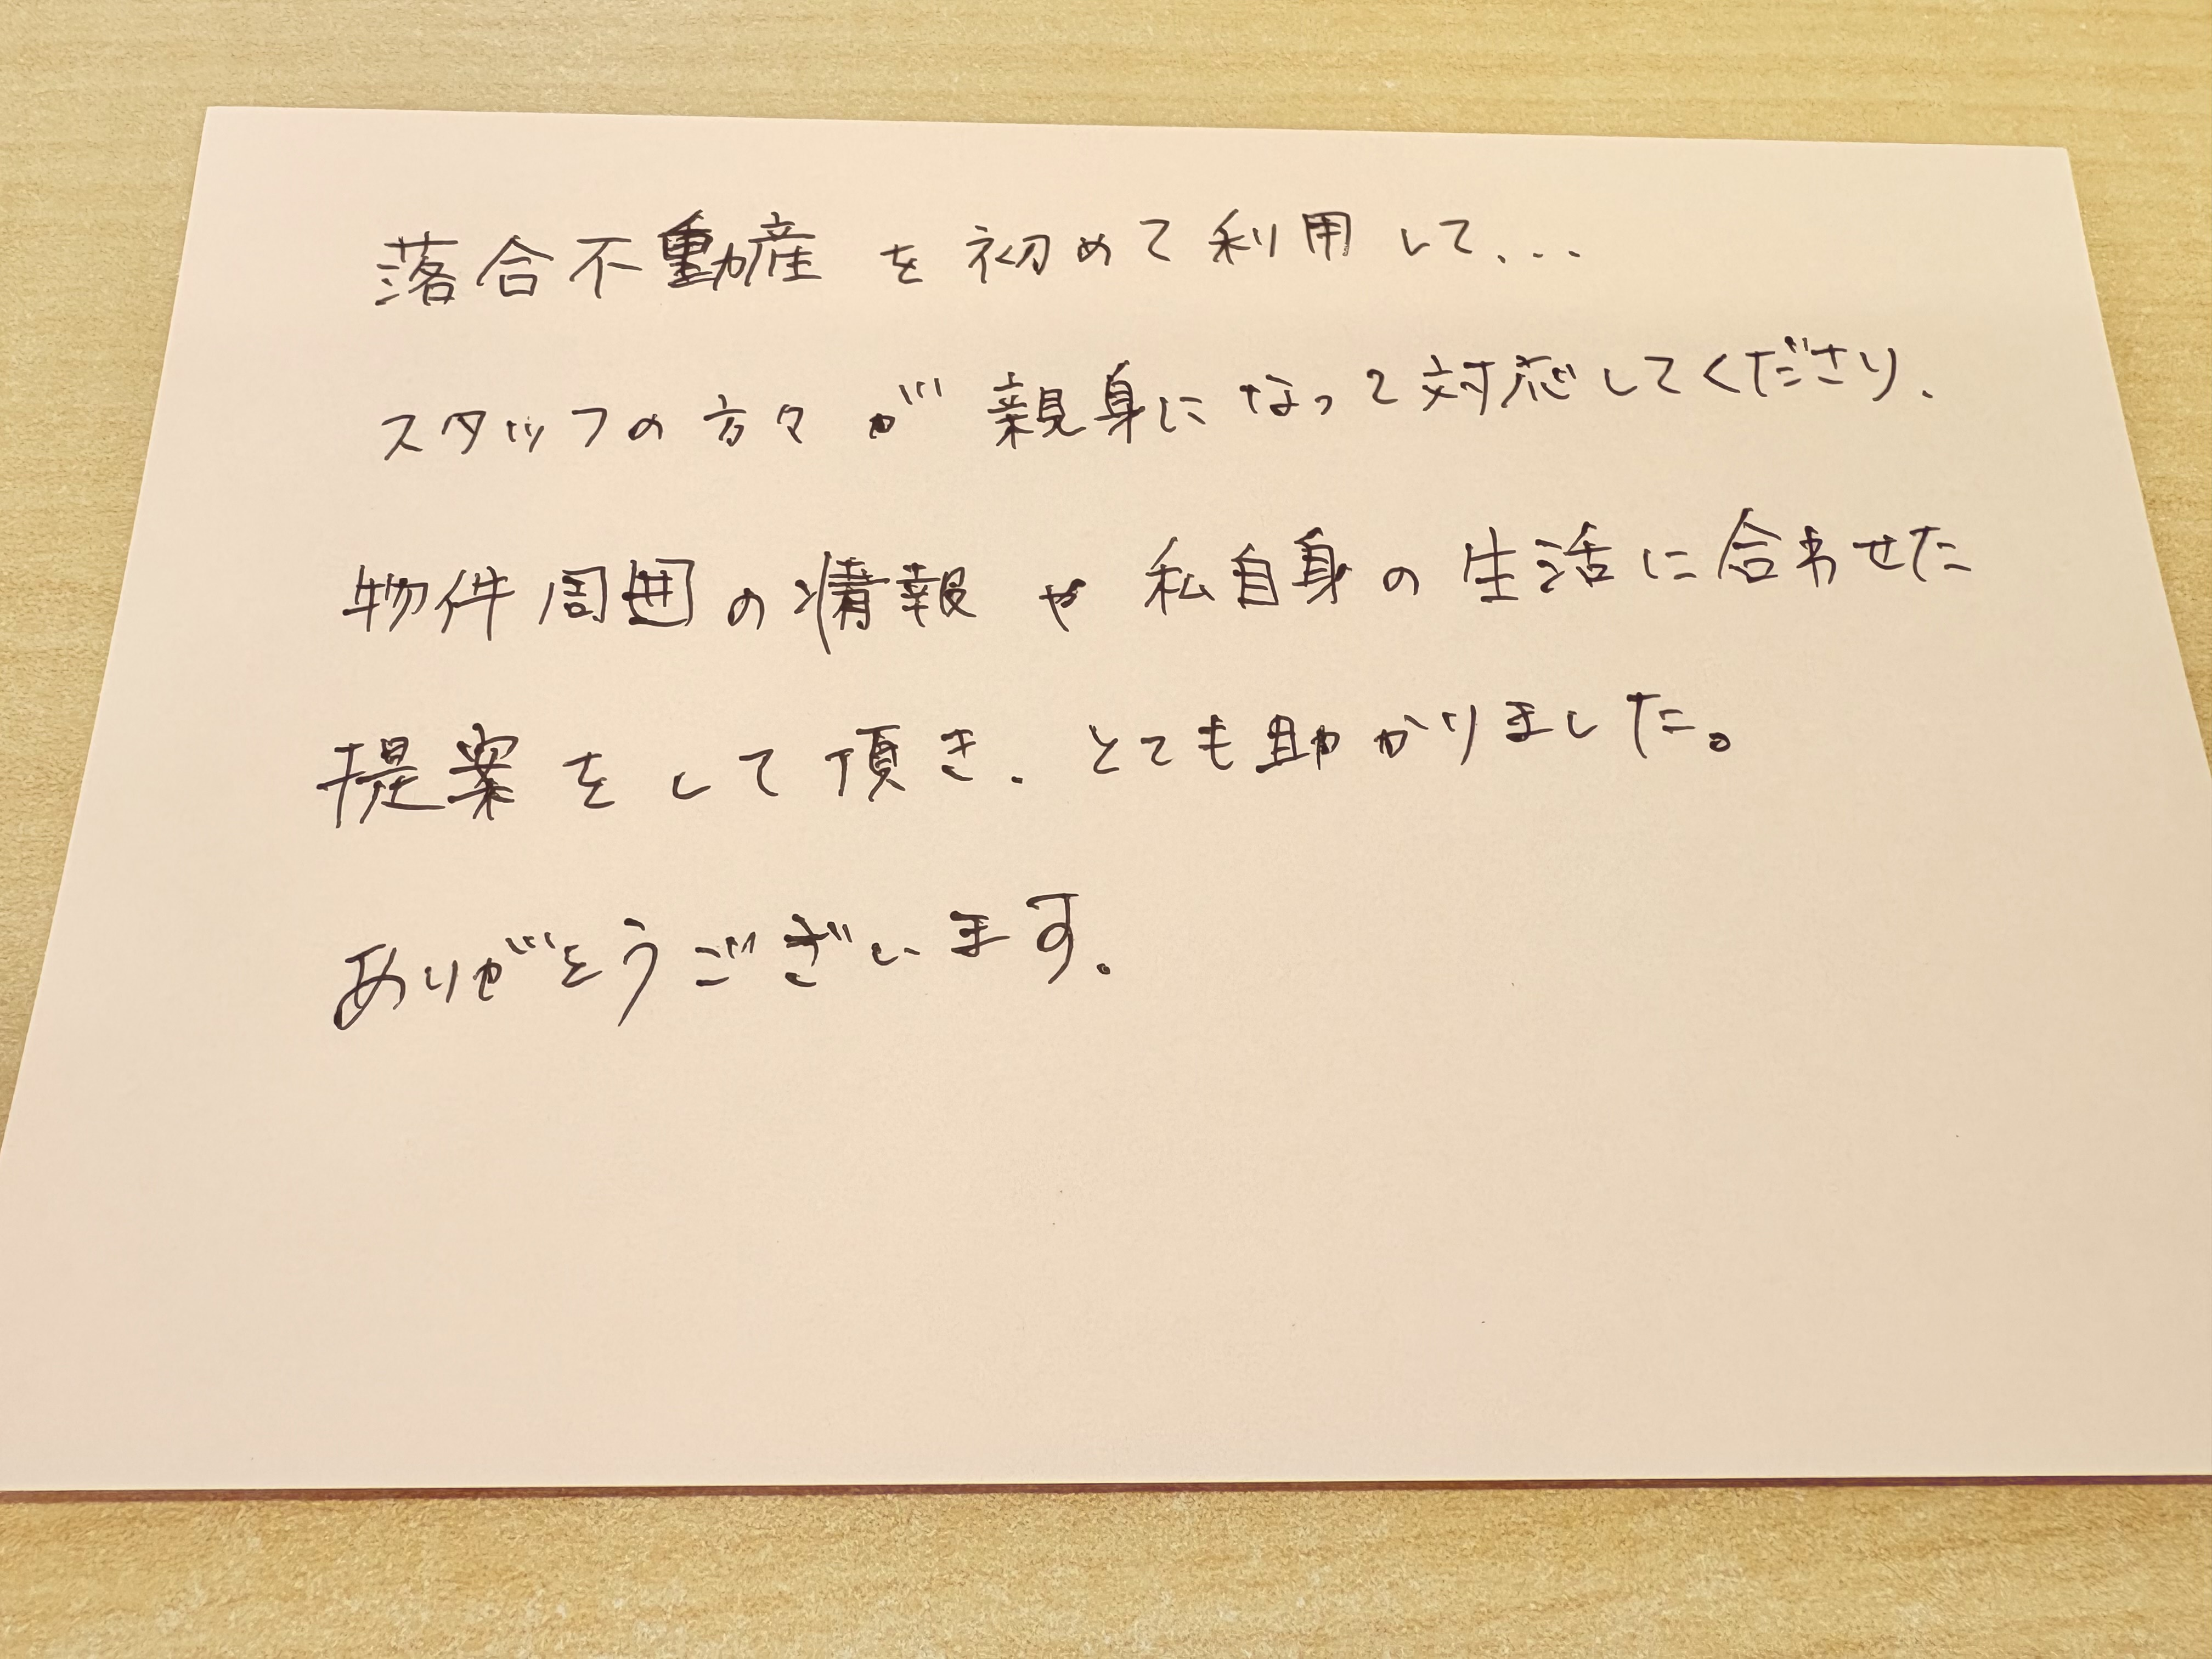 落合不動産を初めて利用して...
スタッフの方々が親身になって対応してくださり、
物件周囲の情報や私自身の生活に合わせた
提案をして頂き、とても助かりました。
ありがとうございます。